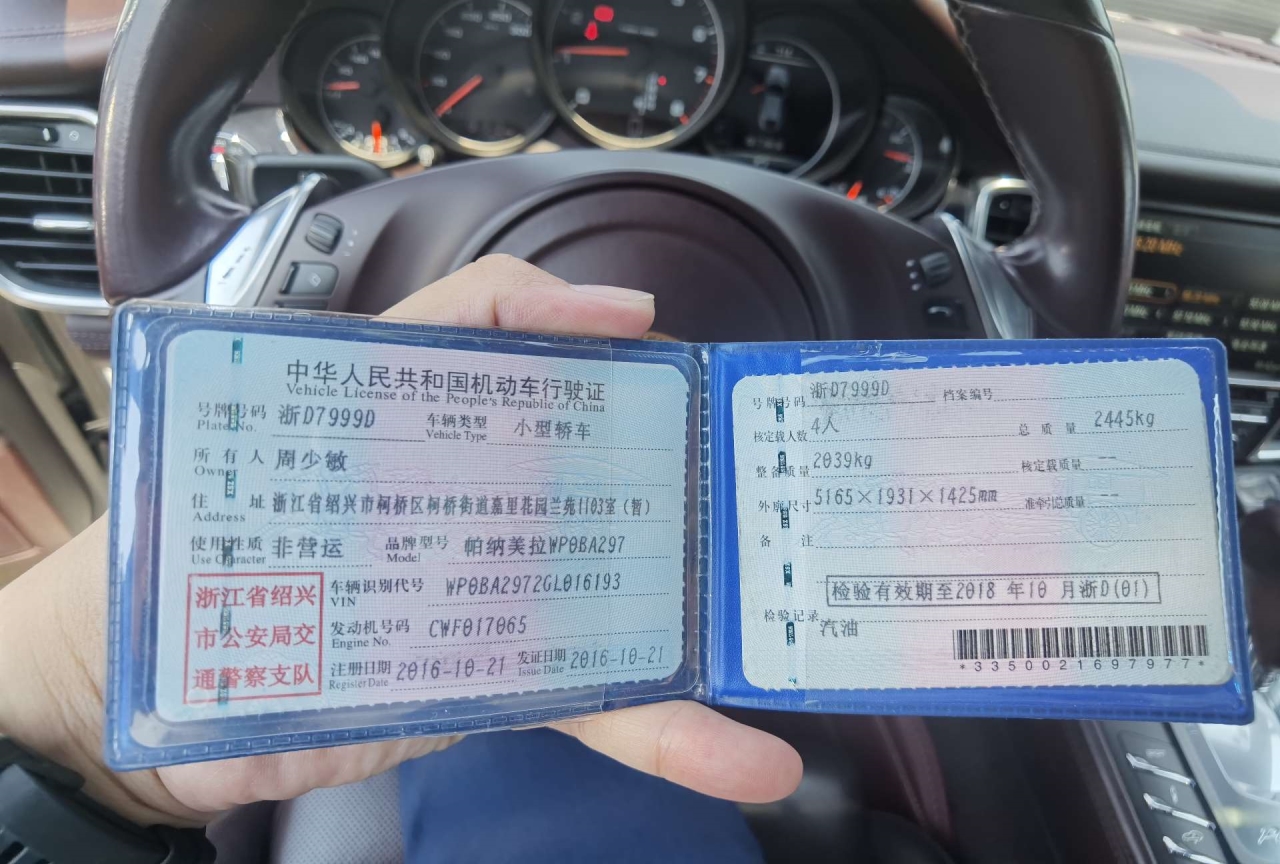 中华人民共和国机动车行驶证
Vehicle License of the People's Republic of China
号牌号码 浙D7999D 车辆类型 小型轿车
Plate No. Vehicle Type
所有人 周少敏
Owner
住址 浙江省绍兴市柯桥区柯桥街道嘉里花园兰苑1103室（暂）
Address
使用性质 非营运 品牌型号 帕纳美拉WP0BA297
Use Character Model
浙江省绍兴
市公安局交
通警察支队
车辆识别代号 WP0BA2972GL016193
VIN
发动机号码 CWF017065
Engine No.
注册日期 2016-10-21 发证日期 2016-10-21
Register Date Issue Date
号牌号码 浙D7999D 档案编号
核定载人数 4人 总质量 2445kg
整备质量 2039kg 核定载质量 --
外廓尺寸 5165×1931×1425mm 准牵引总质量 --
备注
检验有效期至2018 年10 月浙D(01)
检验记录
汽油
*3350021697977*